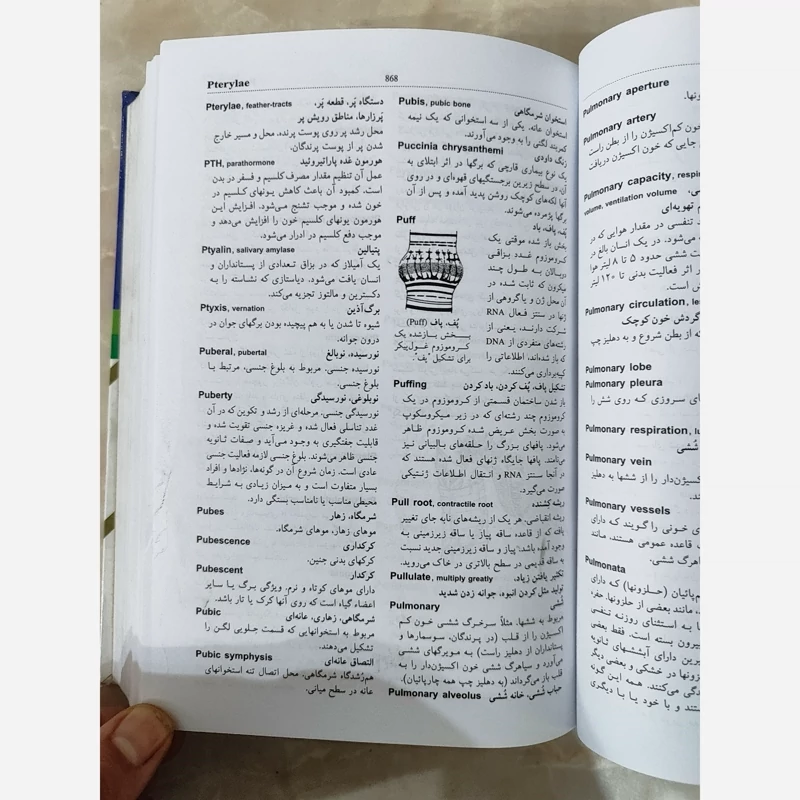 Pterylae
868
Pterylae, feather-tracts دستگاه پَر، قطعه پَر،
پَرزارها، مناطق رویش پر
محل رشد پر روی پوست پرنده، محل و مسیر خارج
شدن پر از پوست پرندگان.
PTH, parathormone هورمون غده پاراتیروئید
عمل آن تنظیم مقدار مصرف کلسیم و فسفر در بدن
است. کمبود آن باعث کاهش یونهای کلسیم در
خون شده و موجب تشنج می‌شود. افزایش این
هورمون یونهای کلسیم خون را افزایش می‌دهد و
موجب دفع کلسیم در ادرار می‌شود.
Ptyalin, salivary amylase پتیالین
یک آمیلاز که در بزاق تعدادی از پستانداران و
انسان یافت می‌شود. دیاستازی که نشاسته را به
دکسترین و مالتوز تجزیه می‌کند.
Ptyxis, vernation برگ‌آذین
شیوه تا شدن یا به هم پیچیده بودن برگهای جوان در
درون جوانه.
Puberal, pubertal نورسیده، نوبالغ
نورسیده جنسی. مربوط به بلوغ جنسی، مرتبط با
بلوغ جنسی.
Puberty نوبلوغی، نورسیدگی
نورسیدگی جنسی. مرحله‌ای از رشد و تکوین که در آن
غدد تناسلی فعال شده و غریزه جنسی تقویت شده و
قابلیت جفتگیری به وجود می‌آید و صفات ثانویه
جنسی ظاهر می‌شوند. بلوغ جنسی لازمه فعالیت جنسی
عادی است. زمان شروع آن در گونه‌ها، نژادها و افراد
بسیار متفاوت است و به میزان زیادی به شرایط
محیطی مناسب یا نامناسب بستگی دارد.
Pubes شرمگاه، زهار
موهای زهار، موهای شرمگاه.
Pubescence کرکداری
کرکهای بدنی جنین.
Pubescent کرکدار
دارای موهای کوتاه و نرم. ویژگی برگ یا سایر
اعضاء گیاه است که روی آنها کرک یا تار باشد.
Pubic شرمگاهی، زهاری، عانه‌ای
مربوط به استخوانهایی که قسمت جلویی لگن را
تشکیل می‌دهند.
Pubic symphysis التصاق عانه‌ای
هم‌رُشدگاه شرمگاهی. محل اتصال تنه استخوانهای
عانه در سطح میانی.
Pubis, pubic bone استخوان شرمگاهی
استخوان عانه. یکی از سه استخوانی که یک نیمه
کمربند لگنی را به وجود می‌آورند.
Puccinia chrysanthemi زنگ داودی
یک نوع بیماری قارچی که برگها در اثر ابتلای به
آن، در سطح زیرین برجستگیهای قهوه‌ای و در روی
آنها لکه‌های کوچک روشن پدید آمده و پس از آن
برگها پژمرده می‌شوند.
Puff پُف، پاف، باد
بخش باز شده موقتی یک
کروموزوم غدد بزاقی
دوبالان به طول چند
میکرون که ثابت شده در
آن محل ژن و یا گروهی از
ژنها در سنتز فعال RNA
شرکت دارند، یعنی از
رشته‌های منفردی از DNA
که باز شده‌اند، اطلاعاتی را
کپیه‌برداری می‌کنند.
پُف، پاف (Puff)
بخش بازشده یک
کروموزوم غول‌پیکر
برای تشکیل "پف".
Puffing تشکیل پاف، پُف کردن، باد کردن
باز شدن ساختمان قسمتی از کروموزوم در یک
کروموزوم چند رشته‌ای که در زیر میکروسکوپ
به صورت بخش عریض شده کروموزوم ظاهر
می‌شود. پافهای بزرگ را حلقه‌های بالبیانی نیز
می‌نامند. پافها جایگاه ژنهای فعال شده هستند که
در آنجا سنتز RNA و انتقال اطلاعات ژنتیکی
صورت می‌گیرد.
Pull root, contractile root ریشه کِشنده
ریشه انقباضی. هر یک از ریشه‌های نابه جای تغییر
یافته که از قاعده ساقه پیاز یا ساقه زیرزمینی به
وجود آمده باشد. پیاز و ساقه زیرزمینی جدید نسبت
به ساقه قدیمی در سطح بالاتری در خاک می‌روید.
Pullulate, multiply greatly تکثیر یافتن زیاد،
تولید مثل کردن انبوه، جوانه زدن شدید
Pulmonary شُشی
مربوط به ششها. مثلاً سرخرگ ششی خون کم
اکسیژن را از قلب (در پرندگان، سوسمارها و
پستانداران از دهلیز راست) به مویرگهای ششی
می‌آورد و سیاهرگ ششی خون اکسیژن‌دار را به
قلب باز می‌گرداند (به دهلیز چپ همه چارپائیان).
Pulmonary alveolus حباب شُشی، خانه شُشی
Pulmonary aperture
Pulmonary artery
خون کم‌اکسیژن را از بطن راست
جایی که خون اکسیژن دریافت
Pulmonary capacity,
volume, ventilation volume
تهویه‌ای
تنفسی در مقدار هوایی که در
می‌شود. در یک انسان بالغ در
ششی حدود ۵ تا ۸ لیتر هوا
در اثر فعالیت بدنی تا ۱۲۰ لیتر
است.
Pulmonary circulation,
گردش خون کوچک
که از بطن شروع و به دهلیز چپ
Pulmonary lobe
Pulmonary pleura
سروزی که روی شش را
Pulmonary respiration,
شُشی
Pulmonary vein
اکسیژن‌دار را از ششها به دهلیز
Pulmonary vessels
خونی را گویند که دارای
قاعده عمومی هستند، مانند
سیاهرگ ششی.
Pulmonata
(حلزونها) که دارای
مانند بعضی از حلزونها. حفره
با استثنای روزنه تنفسی
بیرون بسته است. فقط بعضی
دارای آبششهای ثانویه
حلزونها در خشکی و بعضی دیگر
زندگی می‌کنند. همه این گونه
هستند و با خود یا با دیگری